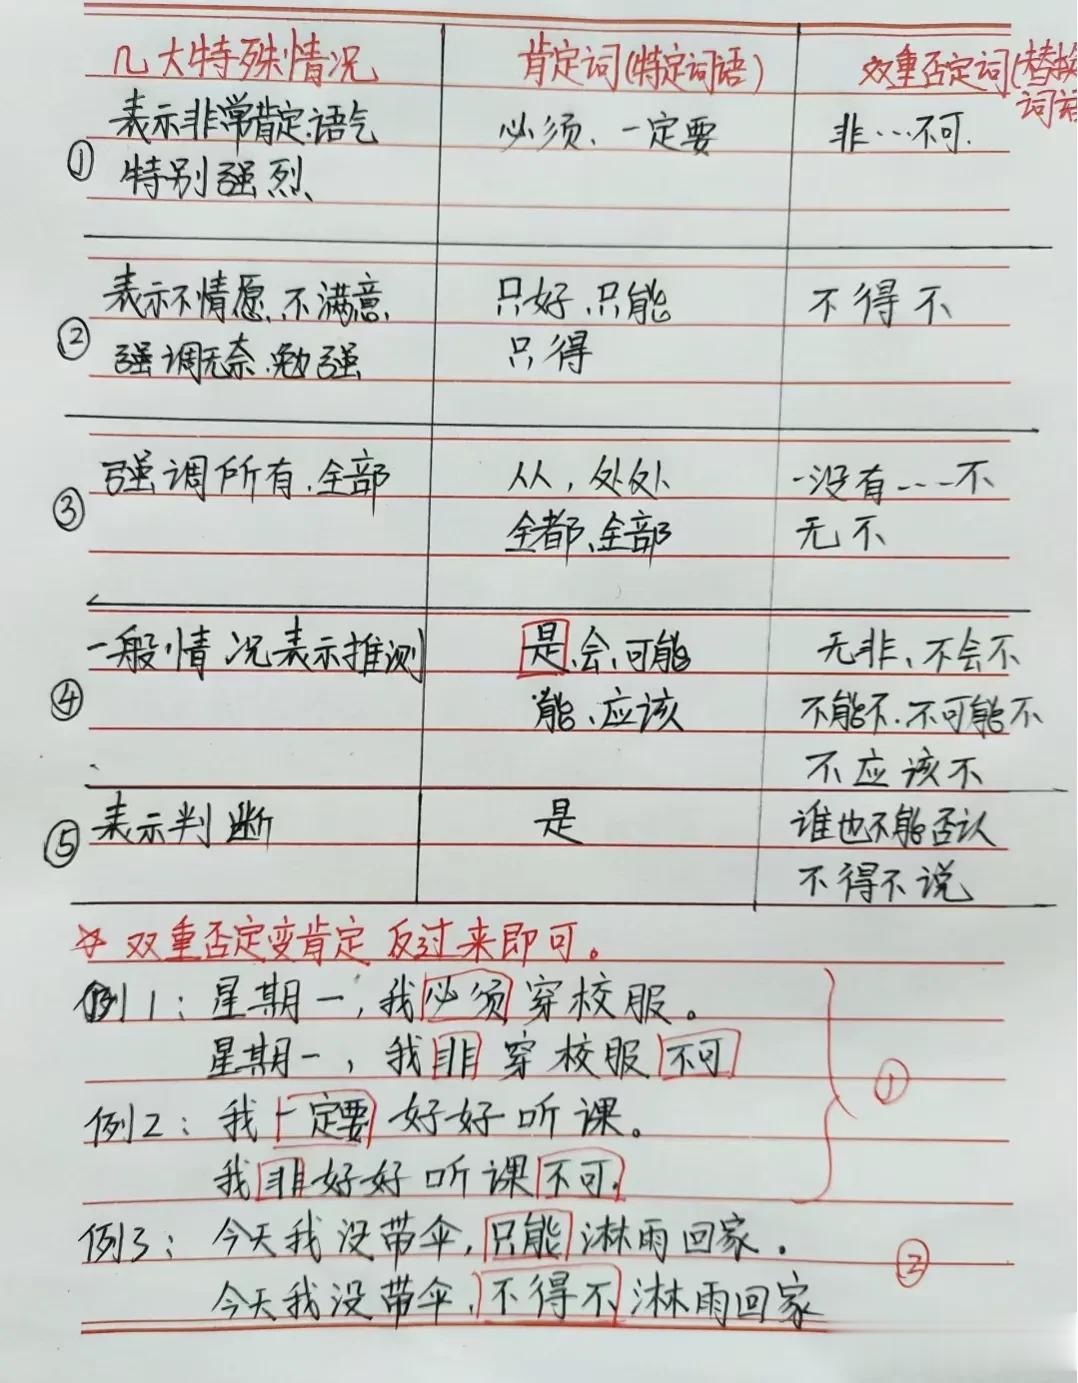 几大特殊情况 肯定词(特定词语) 双重否定词(替换
词语
表示非常肯定.语气 必须、一定要 非…不可.
① 特别强烈、
表示不情愿、不满意、 只好、只能 不得不
② 强调无奈.勉强 只得
强调所有.全部 从,处处、 没有……不
③ 全都、全部 无不
一般情况表示推测 是、会、可能 无非、不会不
④ 能、应该 不能不.不可能不
不应该不
⑤ 表示判断 是 谁也不能否认
不得不说
☆ 双重否定变肯定 反过来即可。
例1:星期一,我必须穿校服。
星期一,我非穿校服不可
①
例2:我一定要好好听课。
我非好好听课不可.
例3:今天我没带伞,只能淋雨回家.
②
今天我没带伞,不得不淋雨回家